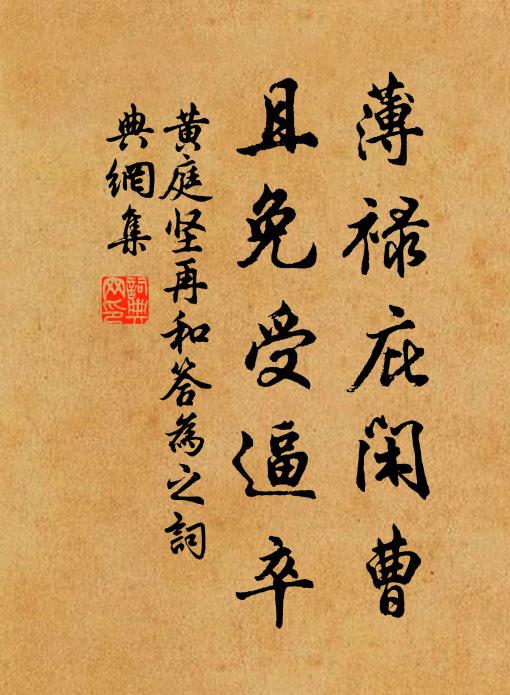 薄禄庇閑曹
且免受逼卒
黄庭坚再和答為之詞
典網集
詞典
网印